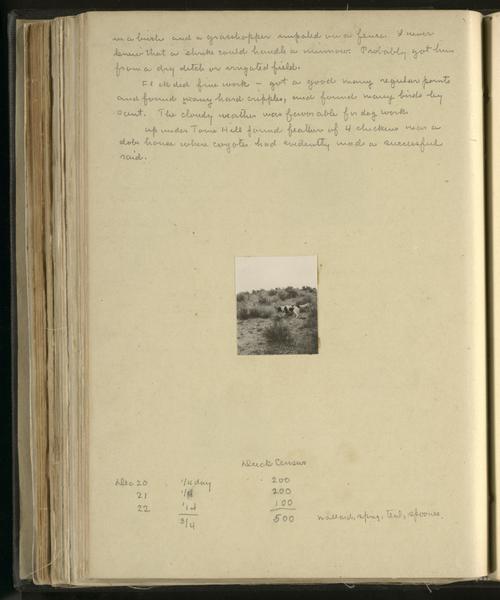 in a bush and a grasshopper impaled on a fence. I never
knew that a shrike could handle a minnow. Probably got him
from a dry ditch or irrigated field.
did fine work - got a good many regular points
and found many hard cripples, and found many birds by
scent. The cloudy weather was favorable for dog work.
Up under Toms Hill found feathers of 4 chickens near a
dobe house where coyotes had evidently made a successful
raid.
Duck Census
Dec 20 1/4 day 200
21 1/4 200
22 1/4 100
3/4 500 mallard, sprig, teal, spoonies.